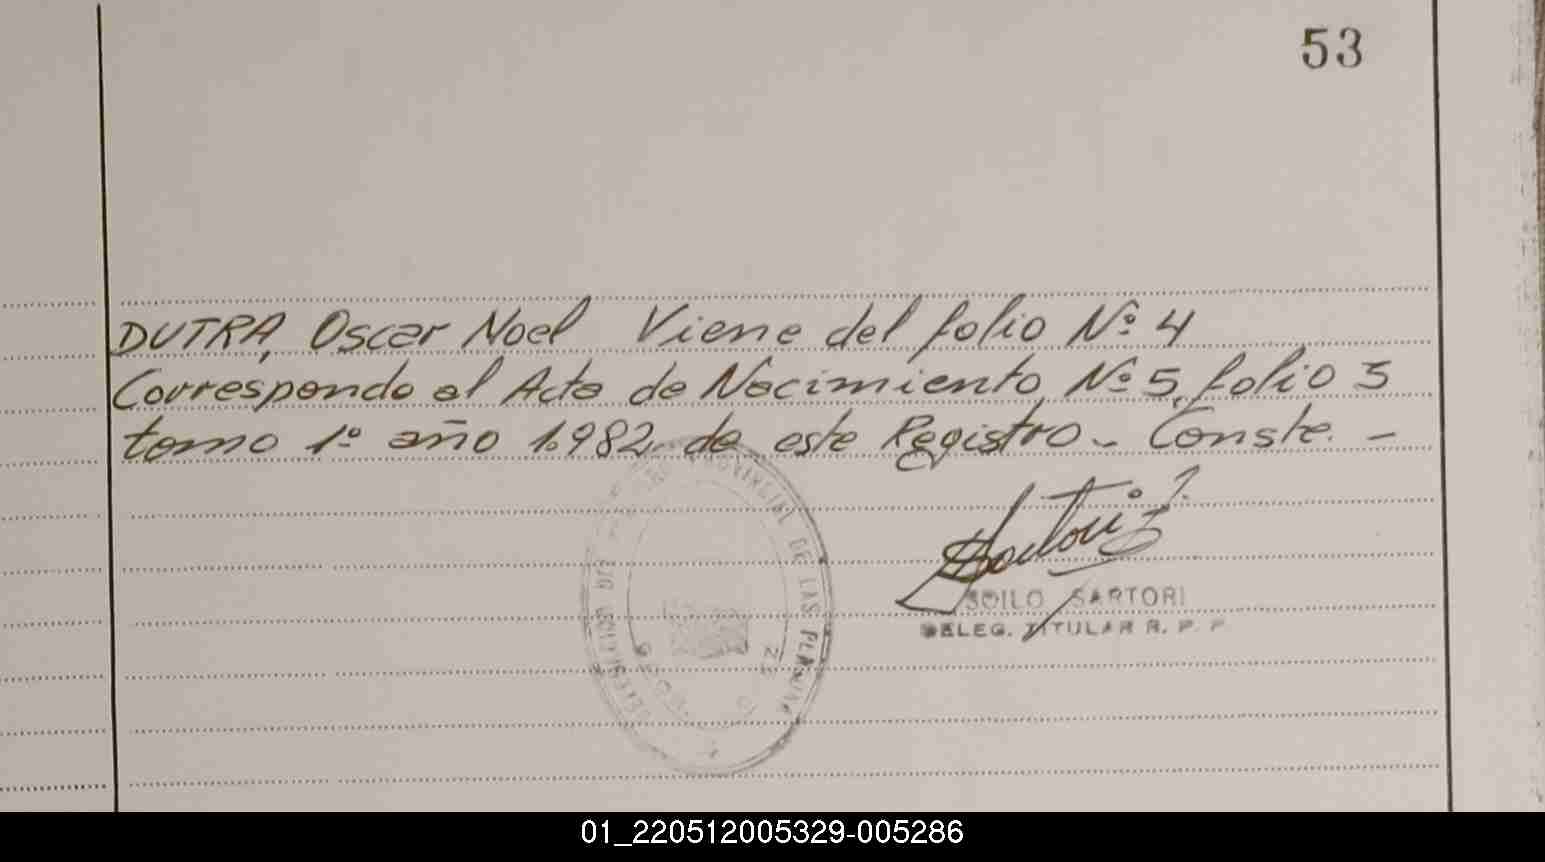 53
DUTRA, Oscar Noel Viene del folio Nº 4
Corresponde al Acta de Nacimiento, Nº 5, folio 3
tomo 1º año 1.982. de este Registro. - Conste. -
SOILO SARTORI
DELEG. TITULAR R. P. P
PROVINCIAL DE LAS PERSONAS
01_220512005329-005286